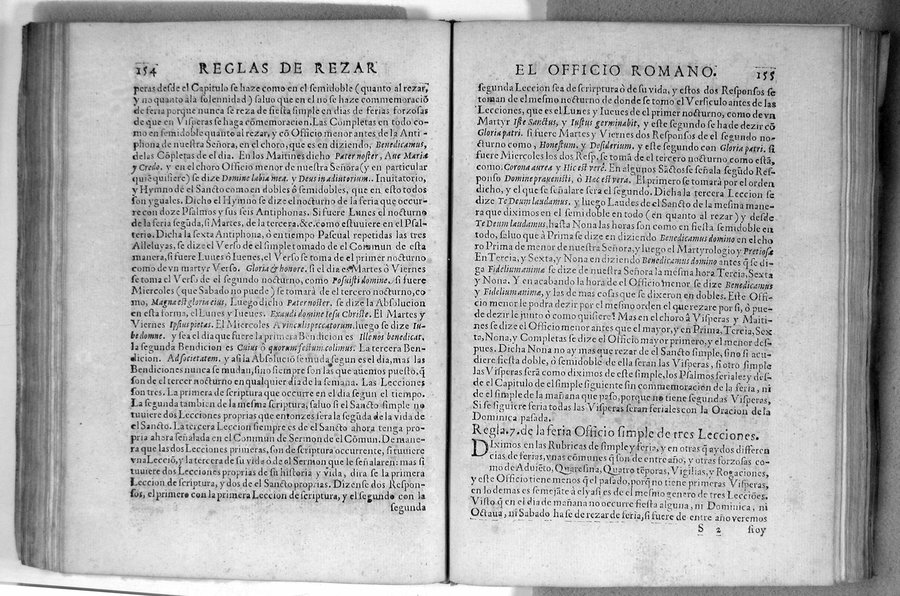 154 REGLAS DE REZAR
peras desde el Capitulo se haze como en el semidoble (quanto al rezar,
y no quanto ala solennidad) saluo que en el no se haze commemoració
de feria porque nunca se reza de fiesta simple en dias de ferias forzosas
de que en Visperas se haga cómemoracion. Las Completas en todo co-
mo en semidoble quanto al rezar, y cō Officio menor antes de la Anti-
phona de nuestra Señora, en el choro, que es en diziendo, Benedicamus,
delas Cōpletas de el dia. En los Maitines dicho Pater noster, Aue Maria
y Credo. y en el choro Officio menor de nuestra Señora (y en particular
quiē quisiere) se dize Domine labia mea. y Deus in adiutorium.. Inuitatorio,
y Hymno de el Sancto como en dobles ō semidobles, que en esto todos
son yguales. Dicho el Hymno se dize el nocturno de la feria que occur-
re con doze Psalmos y sus seis Antiphonas. Si fuere Lunes el nocturno
de la feria següda, si Martes, de la tercera, &c. como estuuiere en el Psal-
terio. Dicha la sexta Antiphona, ò en tiempo Pascual repetidas las tres
Alleluyas, se dize el Verso de el simple tomado de el Commun de esta
manera, si fuere Lunes ò Iueues, el Verso se toma de el primer nocturno
como de vn martyr Verso. Gloria & honore. si el dia es Martes ò Viernes
se toma el Verso de el segundo nocturno, como Posuisti domine. Si fuere
Miercoles (que Sabado no puede) se tomará de el tercero nocturno, co-
mo, Magna est gloria eius. Luego dicho Pater noster. se dize la Absolucion
en esta forma, el Lunes y Iueues. Exaudi domine Iesu Christe. El Martes y
Viernes Ipsius pietas. El Miercoles A vinculis peccatorum. luego se dize Iu-
be domne. y sea el dia que fuere la primera Bendicion es Ille nos benedicat,
la segunda Bendicion es Cuius ò quorum festum colimus. La tercera Ben-
dicion. Ad societatem. y assi la Absolució se muda segun es el dia, mas las
Bendiciones nunca se mudan, sino siempre son las que auemos puesto, q̃
son de el tercer nocturno en qualquier dia de la semana. Las Lecciones
son tres. La primera de scriptura que occurre en el dia segun el tiempo.
La segunda tambien de la mesma scriptura, saluo si el Sancto simple no
tuuiere dos Lecciones proprias que entonces sera la segūda de la vida de
el Sancto. La tercera Leccion siempre es de el Sancto ahora tenga pro-
pria ahora señalada en el Commun de Sermon de el Cōmun. De mane-
ra que las dos Lecciones primeras, son de scriptura occurrente, si tuuiere
vna Lecciō, y la tercera de su vida ò de el Sermon que le señalaren: mas si
tuuiere dos Lecciones proprias de su historia y vida, dira se la primera
Leccion de scriptura, y dos de el Sancto proprias. Dizense dos Respon-
sos, el primero con la primera Leccion de scriptura, y el segundo con la
segunda
EL OFFICIO ROMANO. 155
segunda Leccion sea de scrirptura ò de su vida, y estos dos Responsos se
toman de el mesmo nocturno de donde se tomo el Versiculo antes de las
Lecciones, que es el Lunes y Iueues de el primer nocturno, como de vn
Martyr Iste Sanctus, y Iustus germinabit, y este segundo se ha de dezir cō
Gloria patri. si fuere Martes y Viernes dos Responsos de el segundo no-
cturno, como, Honestum, y Desiderium. y este segundo con Gloria patri. si
fuere Miercoles los dos Resp, se tomā de el tercero nocturno como está,
como. Corona aurea y Hic est vere. En algunos Sāctos se señala segūdo Res-
ponso Domine praeuenisti, ò Hac est vera. El primero se tomará por el orden
dicho, y el que se señalare sera el segundo. Dicha la tercera Leccion se
dize Te Deum laudamus. y luego Laudes de el Sancto de la mesma mane-
ra que diximos en el semidoble en todo (en quanto al rezar) y desde
Te Deum laudamus, hasta Nona las horas son como en fiesta semidoble en
todo, saluo que à Prima se dize en diziendo Benedicamus domino en el cho
ro Prima de menor de nuestra Señora, y luego el Martyrologio y Pretiosa
En Tercia, y Sexta, y Nona en diziendo Benedicamus domino antes q̃ se di-
ga Fidelium animæ se dize de nuestra Señora la mesma hora Tercia, Sexta
y Nona. Y en acabando la hora de el Officio menor, se dize Benedicamus
y Fidelium animæ, y las de mas cosas que se dixeron en dobles. Este Offi-
cio menor le podra dezir por el mesmo orden el que rezare por si, ò pue-
de dezir le junto ò como quisiere! Mas en el choro à Visperas y Maiti-
nes se dize el Officio menor antes que el mayor, y en Prima, Tercia, Sex
ta, Nona, y Completas se dize el Officio mayor primero, y el menor des-
pues. Dicha Nona no ay mas que rezar de el Sancto simple, sino si acu-
diere fiesta doble, ò semidoble de ella seran las Visperas, si otro simple
las Visperas será como diximos de este simple, los Psalmos feriales: y des-
de el Capitulo de el simple siguiente sin commemoracion de la feria, ni
de el simple de la mañana que passo, porque no tiene segundas Visperas,
Si se siguiere feria todas las Visperas seran feriales con la Oracion de la
Dominica passada.
Regla. 7. de la feria Officio simple de tres Lecciones.
DIximos en las Rubricas de simple y feria, y en otras q̃ ay dos differen
cias de ferias, vnas cōmunes q̃ son de entre año, y otras forzosas co-
mo de Aduiēto, Quaresma, Quatro tēporas, Vigilias, y Rogaciones,
y este Officio tiene menos q̃ el passado, porq̃ no tiene primeras Visperas,
en lo demas es semejāte à el y assi es de el mesmo genero de tres Lecciōes.
Visto q̃ en el dia de mañana no occurre fiesta alguna, ni Dominica, ni
Octaua, ni Sabado ha se de rezar de feria, si fuere de entre año veremos
S 2 si oy